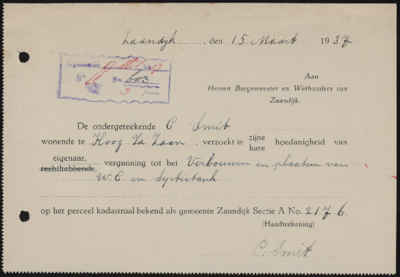 Zaandijk, den 15 Maart 1937
Ingekomen 9 Mrt 1937
No. 603
Aan
Heeren Burgemeester en Wethouders van
Zaandijk.
De ondergeteekende C Smit
wonende te Koog a/d Zaan, verzoekt in zijne hoedanigheid van
hare
eigenaar,
rechthebbende, vergunning tot het Verbouwen en plaatsen van
W.C en Septictank
op het perceel kadastraal bekend als gemeente Zaandijk Sectie A No. 2176
(Handteekening)
C. Smit